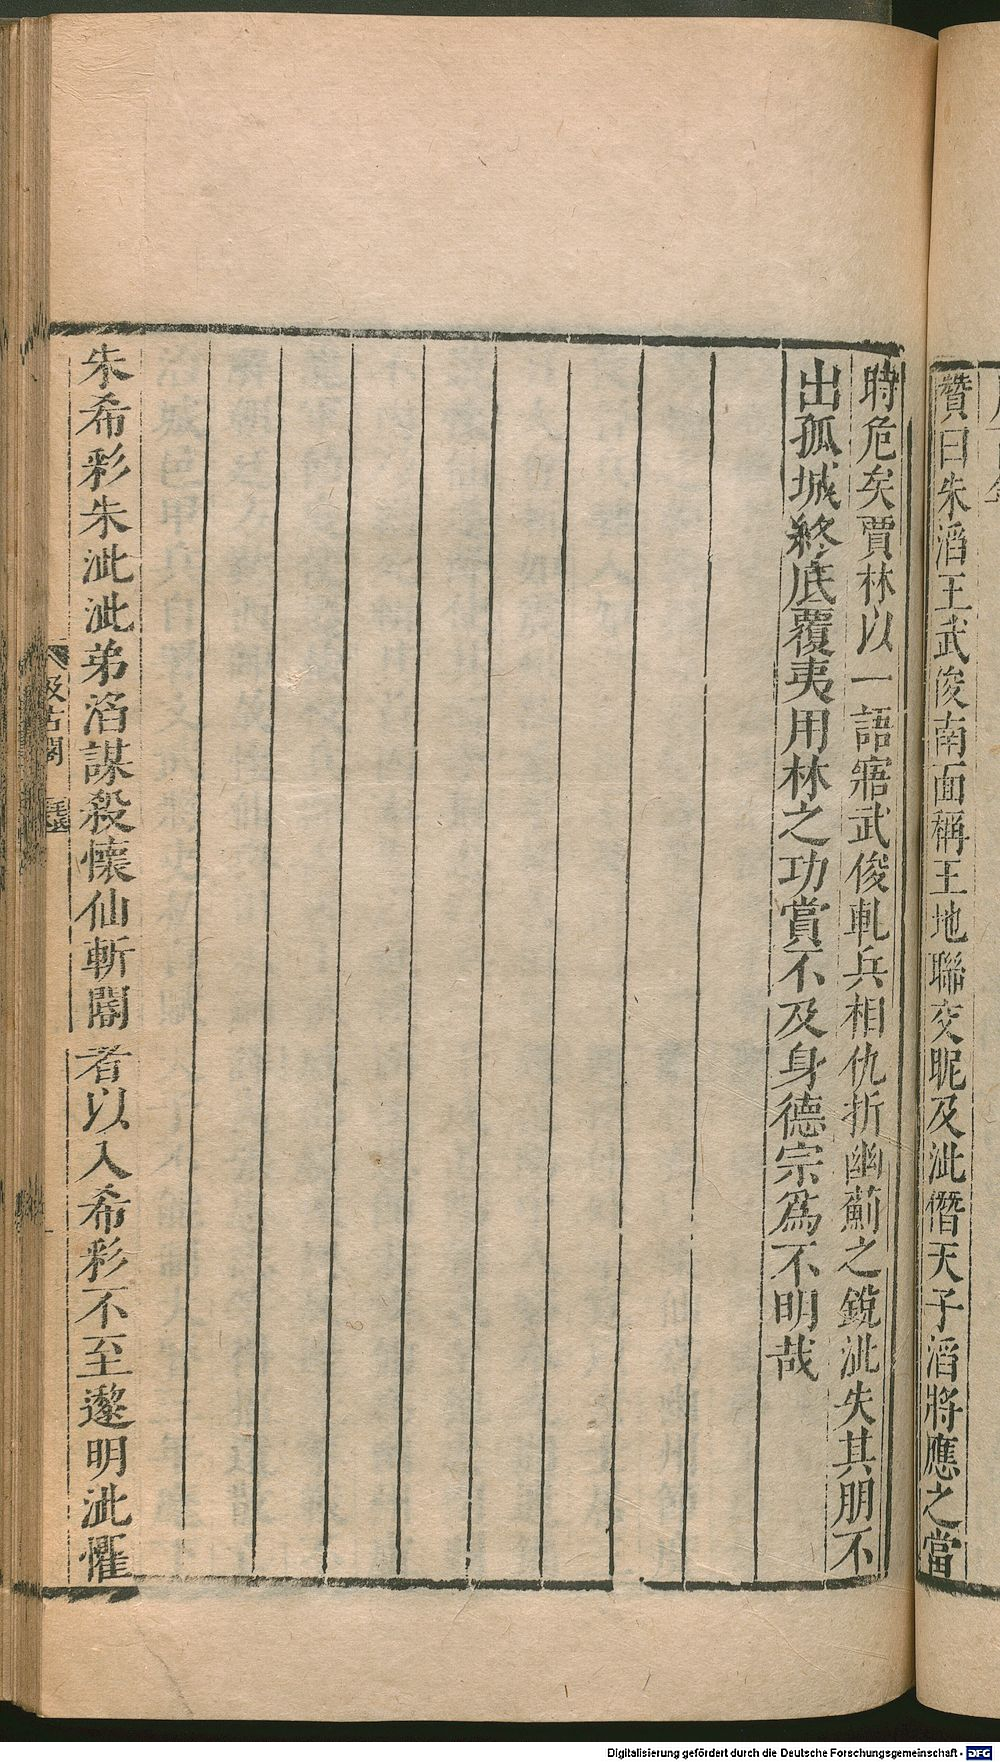 贊曰朱滔王武俊南面稱王地聯交昵及泚僭天子滔將應之當
時危矣賈林以一語寤武俊軋兵相仇折幽薊之銳泚失其朋不
出孤城終底覆夷用林之功賞不及身德宗爲不明哉
朱希彩朱泚泚弟滔謀殺懷仙斬閽者以入希彩不至遲明泚懼
汲古閣
Digitalisierung gefördert durch die Deutsche Forschungsgemeinschaft - DFG